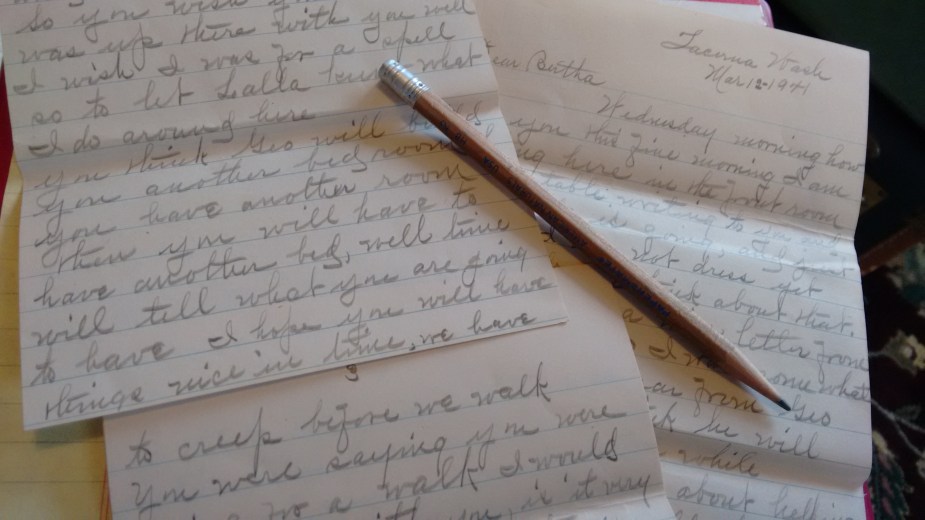 so you wish you
was up there with you will
I wish I was for a spell
so to let Lalla know what
I do around here
you think Geo will build
you another bedroom
you have another room
then you will have to
have another bed, well time
will tell what you are going
to have I hope you will have
things nice in time, we have
to creep before we walk
You were saying you were
a walk I would
you, is it very
Tacoma Wash
Mar 12-1941
Bertha
Wednesday morning how
you this fine morning I am
here in the front room
table writing to you and
not dress yet
about that.
letter from
some what
from Geo
he will
while
about